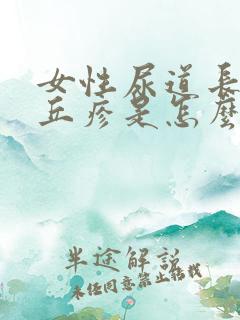 女性尿道長
丘疹是怎麼
半途解說
未經同意禁止轉載